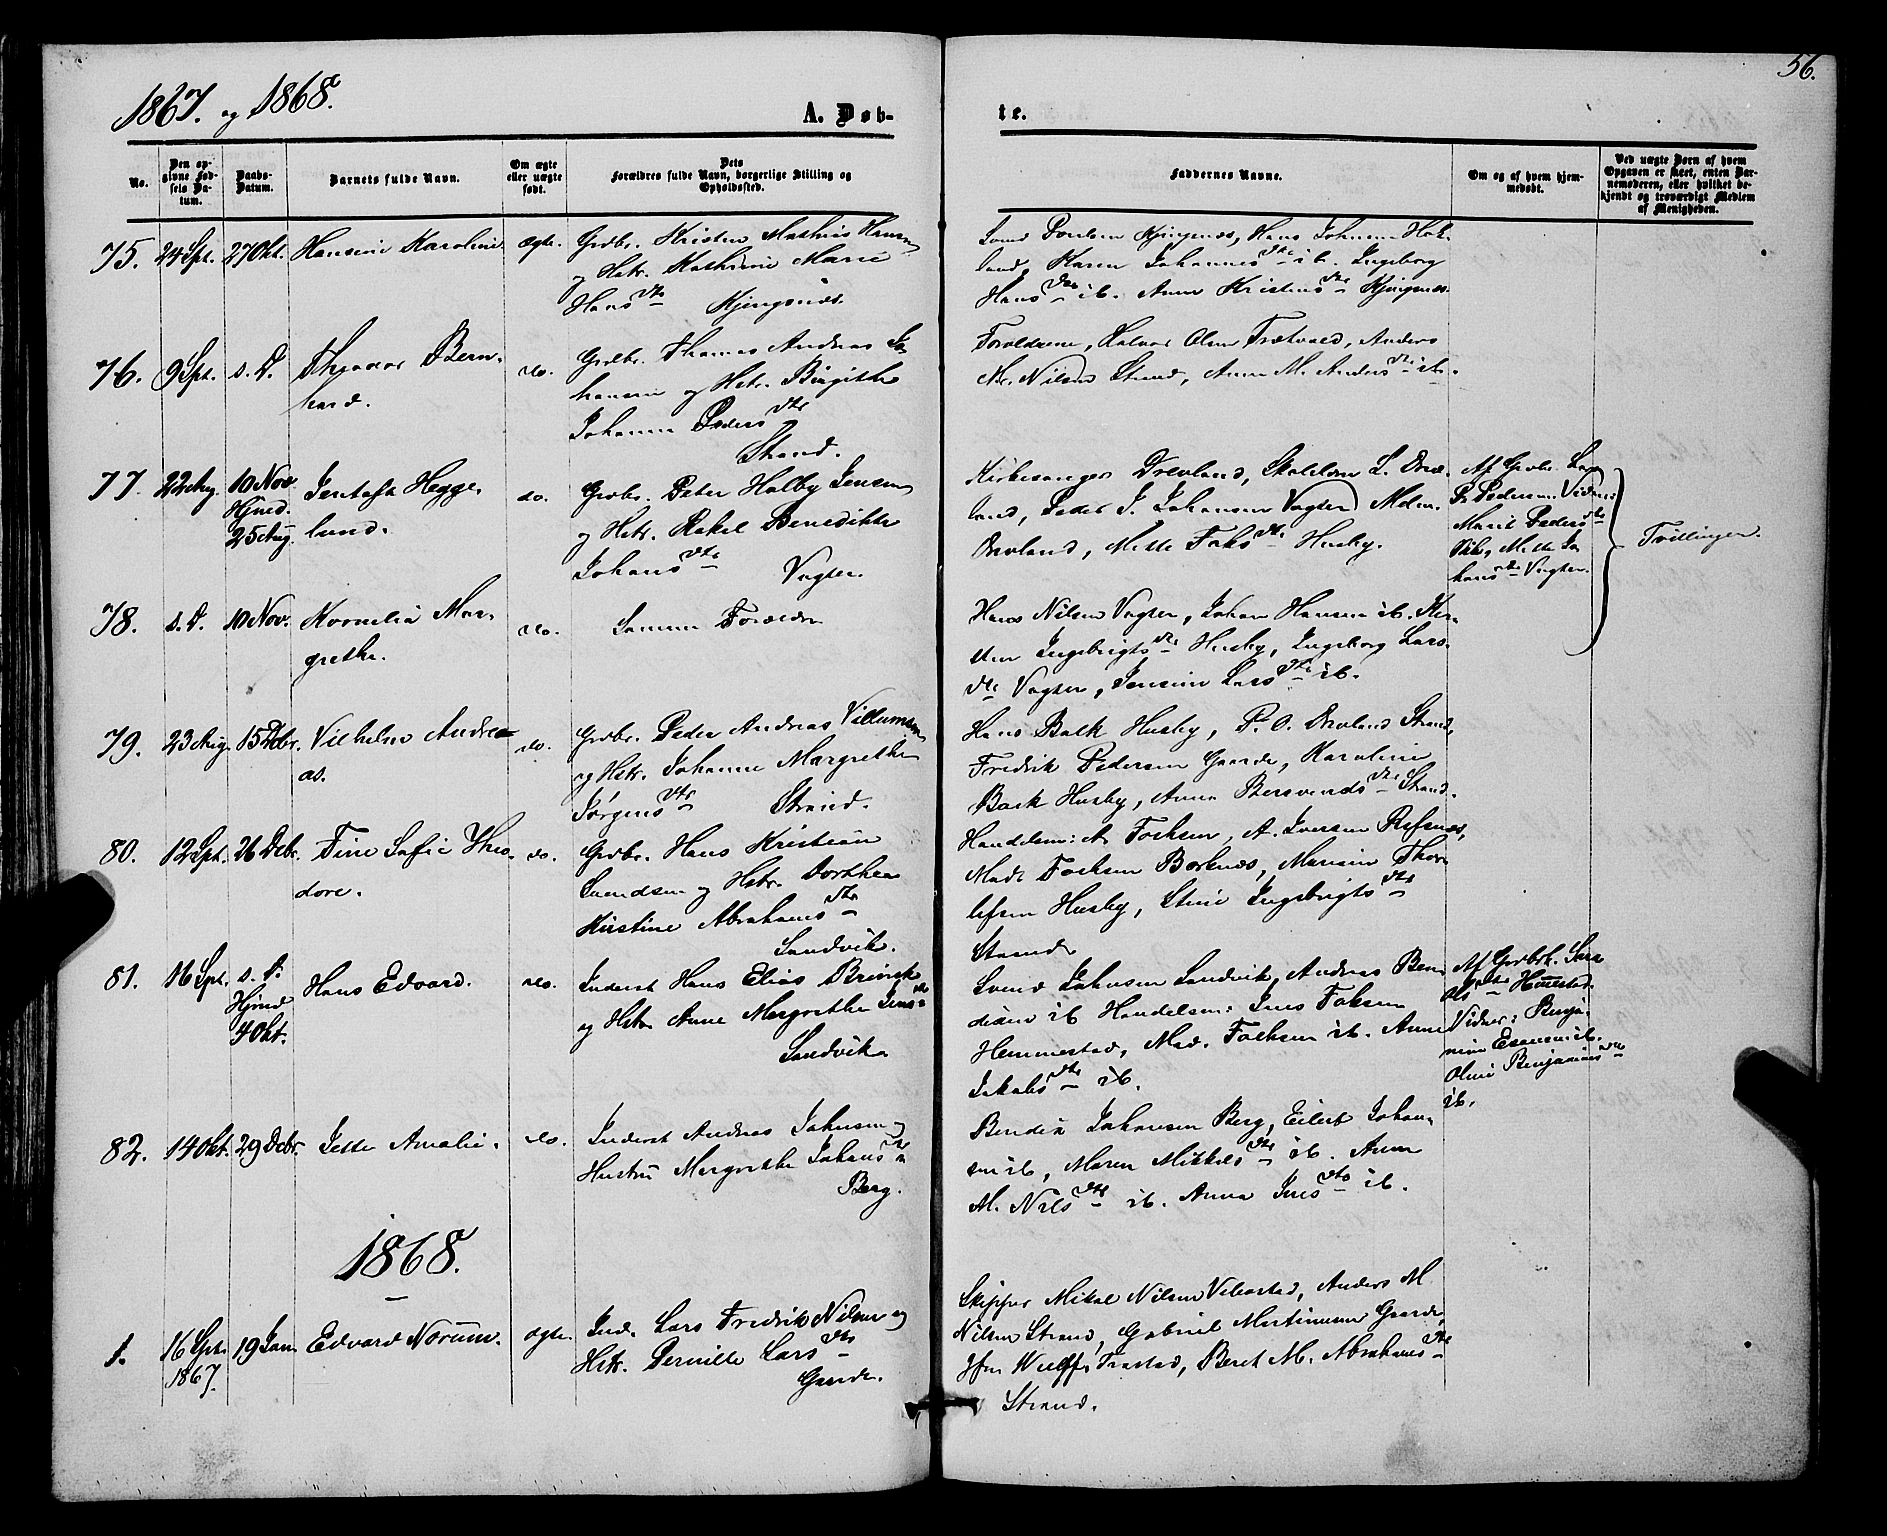 56.
1867. og 1868.
A. Døb-
te.
No.
Den op-
givne Fød-
sels Da-
tum.
Daabs-
Datum.
Barnets fulde Navn.
Om ægte
eller uægte
født.
Dets
Forældres fulde Navn, borgerlige Stilling og
Opholdssted.
Faddernes Navne.
Om og af hvem hjem-
medøbt.
Ved uægte Børn af hvem
Opgaven er skeet, enten Bar-
nemoderen, eller hvilket be-
kjendt og troværdigt Medlem
af Menigheden.
75. 24 Spt. 27 Okt. Hansine Karoline ægte. Grdbr. Kristen Mathias Hansen
og Hstr. Kathrine Marie
Hans dtr Kjengsnæs.
Svend Poulsen Kjengsnæs, Hans Johnsen Hok-
land, Karen Johannes dtr ib. Ingeborg
Hans dtr ib. Anne Kristens dtr Kjengsnæs.
76. 9 Spt. s. D. Theodor Bern-
hard.
do. Grdbr. Thomas Andreas Jo-
hansen og Hstr. Birgithe
Johanna Peders dtr
Strand.
Forældrene, Halvor Olsen Trætvold, Anders
M. Nilsen Strand, Anne M. Anders dtr ib.
77. 22 Aug. 10 Nov.
Hjmd.
25 Aug.
Jentoft Hegge-
lund.
do. Grdbr. Peter Holby Jensen
og Hstr. Rakel Benedikte
Johans dtr Vagten.
Kirkesanger Drevland, Skolelærer L. Drev-
land, Peder J. Johansen Vagten, Mdm.
Drevland, Mette Foks dtr Husby.
Af Grdbr. Lars
P. Pedersen Vidner:
Marit Peders dtr
ib, Mette Jo-
hans dtr Vagten.
Tvillinger.
78. s. D. 10 Nov. Kornelia Mar-
grethe.
do. Samme Forældre
Hans Nilsen Vagten, Johan Hansen ib. Kir-
sten Ingebrigts dtr Husby, Ingeborg Lars-
dtr Vagten, Jensine Lars dtr ib.
79. 23 Aug. 15 Debr. Vilhelm Andre-
as.
do. Grdbr. Peder Andreas Villumsen
og Hstr. Johanne Margrethe
Jørgens dtr Strand.
Hans Bak Husby, P. O. Drevland Strand,
Fredrik Pedersen Gaarde, Karoline
Bak Husby, Anna Bersvends dtr Strand.
80. 12 Spt. 26 Debr. Tine Sofie Theo-
dore.
do. Grdbr. Hans Kristian
Svendsen og Hstr. Dorthea
Kirstine Abrahams dtr
Sandvik.
Handelsm: A. Fochsen, A. Iversen Refsnæs,
Mad. Fochsen Borknæs, Mariane Thor-
lefsen Husby, Stine Ingebrigts dtr
Strand
81. 16 Spt. s. D.
Hjmd
4 Okt.
Hans Edvard.
do. Inderst Hans Elias Brinck
og Hstr Anne Margrethe Jens dtr
Sandvik
Svend Johnsen Sandvik, Andreas Ben-
dixen ib Handelsm: Jens Foksen
Hemmestad, Mad. Fochsen ib. Anne
Jakobs dtr ib.
Af Grdbrk. Sara
Ols dtr Hemestad
Vidner: Benja-
min Esensen ib.
Oline Benjamins dtr
ib.
82. 14 Okt. 29 Debr. Jette Amalie. do. Inderst Andreas Johnsen og
Hustru Margrethe Johans dtr
Berg.
Bendix Johansen Berg, Eilert Johan-
sen ib, Maren Mikkels dtr ib. Anne
M. Nils dtr ib. Anna Jens dtr ib.
1868.
1. 16 Spt.
1867.
19 Jan. Edvard Norum. ægte. Ind. Lars Fredrik Nilsen og
Hstr. Pernille Lars dtr
Gaarde.
Skipper Mikal Nilsen Vebostad, Anders M.
Nilsen Strand, Gabriel Martinusen Gaarde,
Jfru Wulff Trastad, Beret M. Abrahams dtr
Strand.